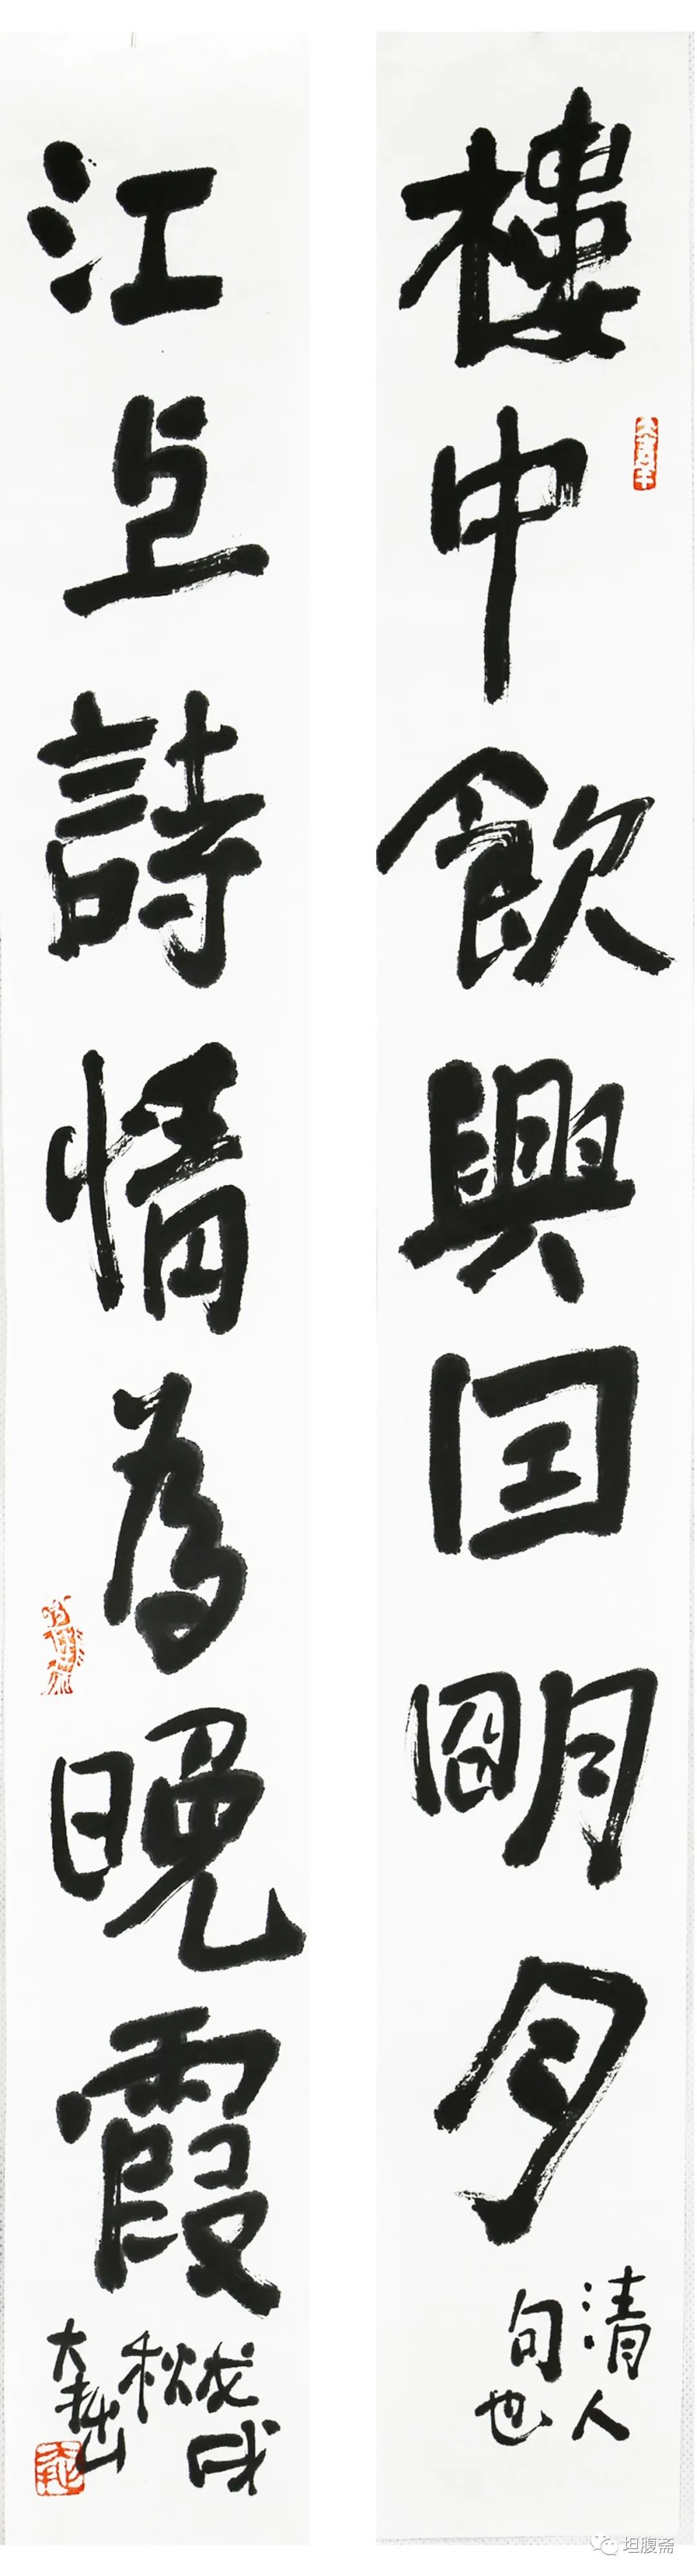 樓中飲興因明月
清人
句也
江上詩情為晚霞
戊戌
秋
大拙
坦腹斋